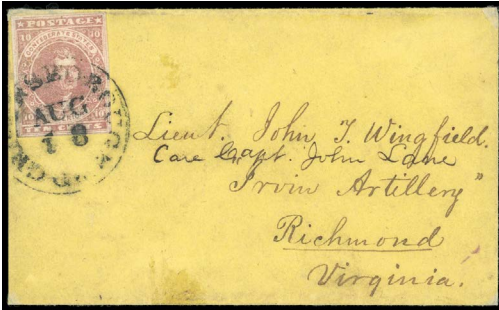 POSTAGE
CONFEDERATE STATES
10 10
TEN CENTS
AUG
18
Lieut. John T. Wingfield.
Care Capt. John Lane
Irvin Artillery"
Richmond
Virginia.